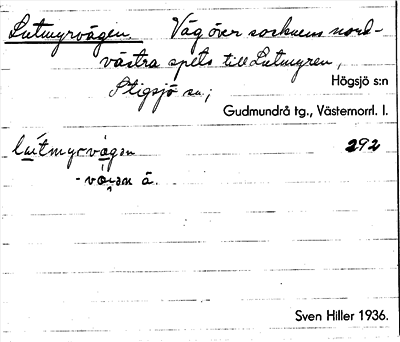 Lutmyrvägen. Väg över socknens nord-
västra spets till Lutmyren,
Stigsjö sn.;
Högsjö s:n
Gudmundrå tg., Västernorrl. l.
lútmyrvägan 292
Sven Hiller 1936.